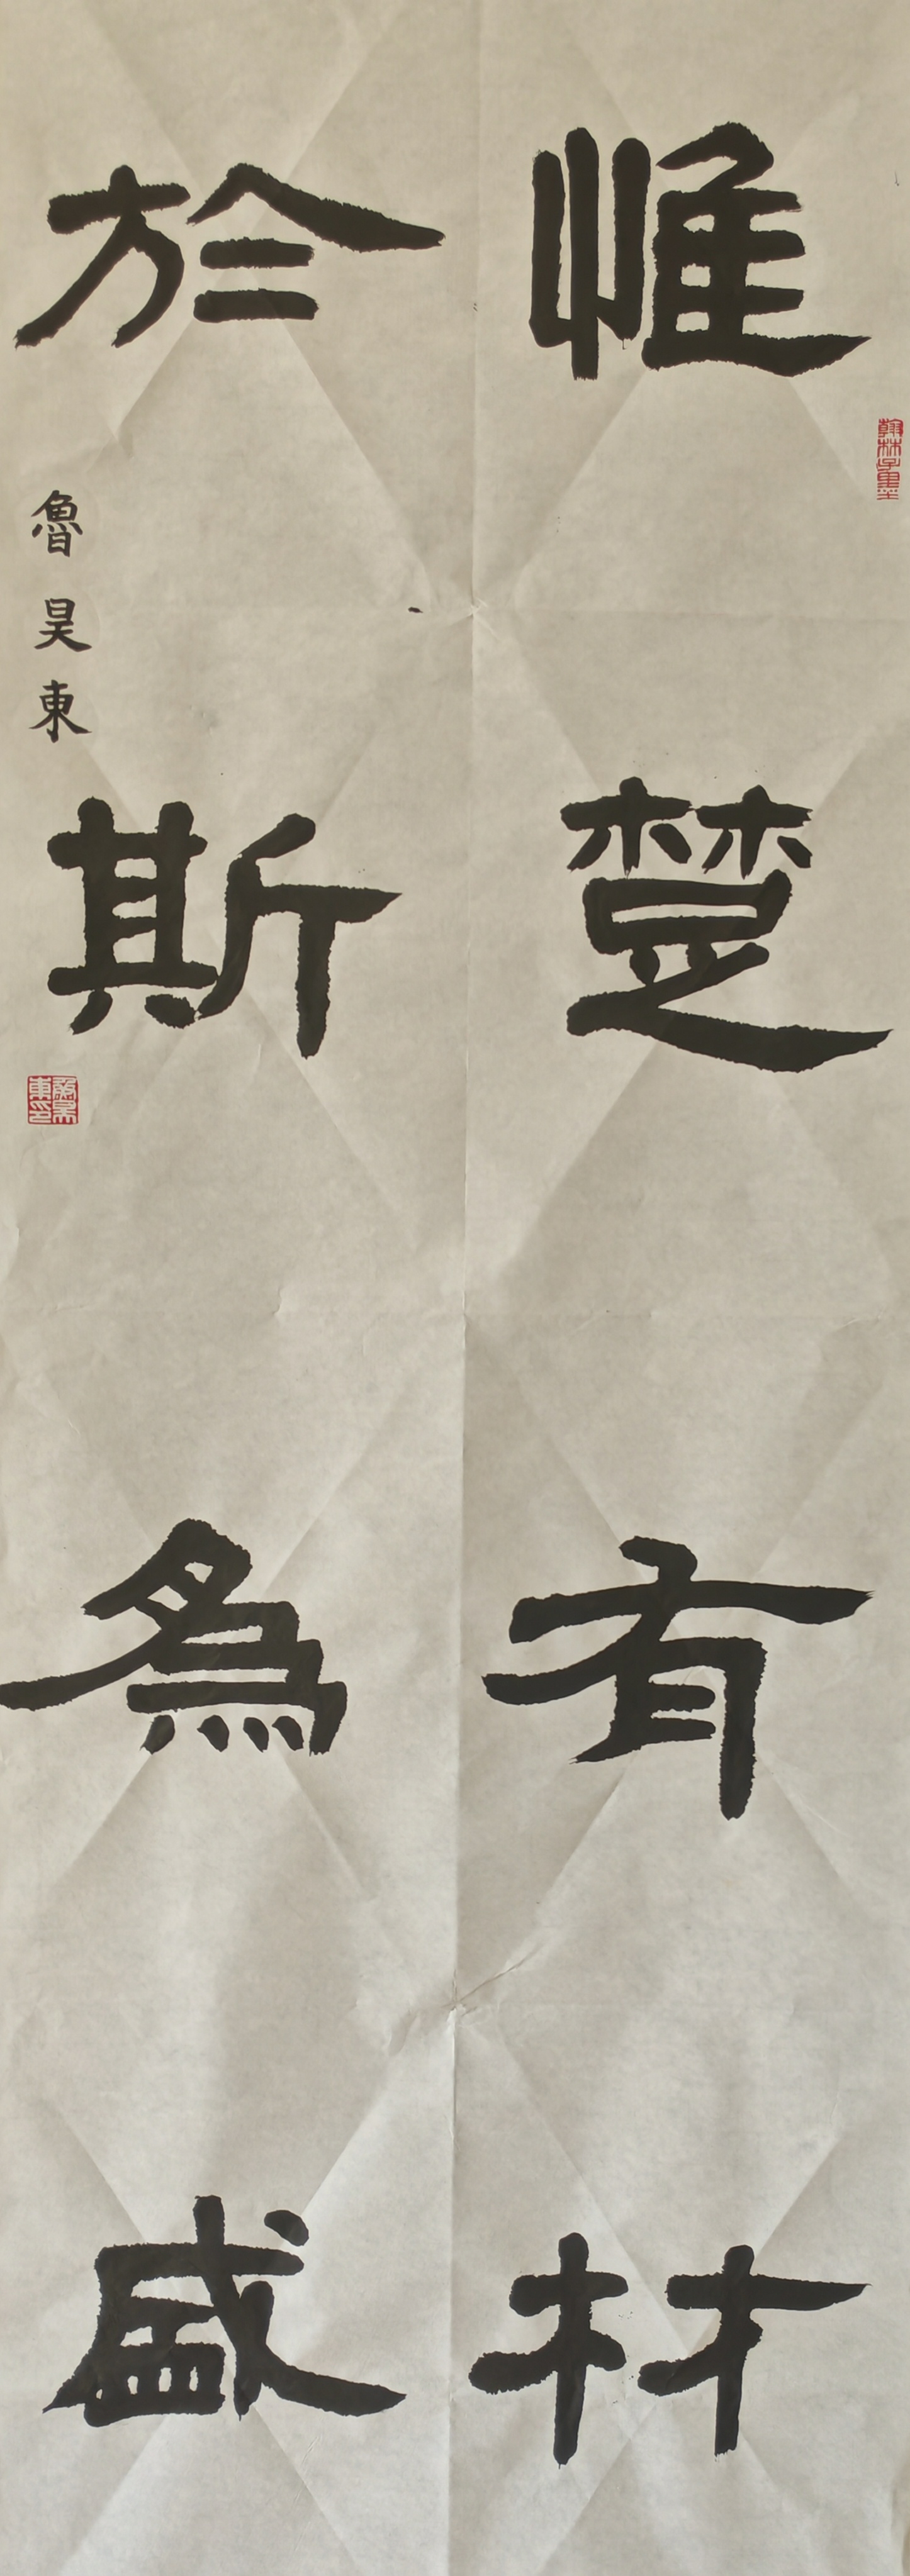 惟楚有材
於斯為盛
魯昊東